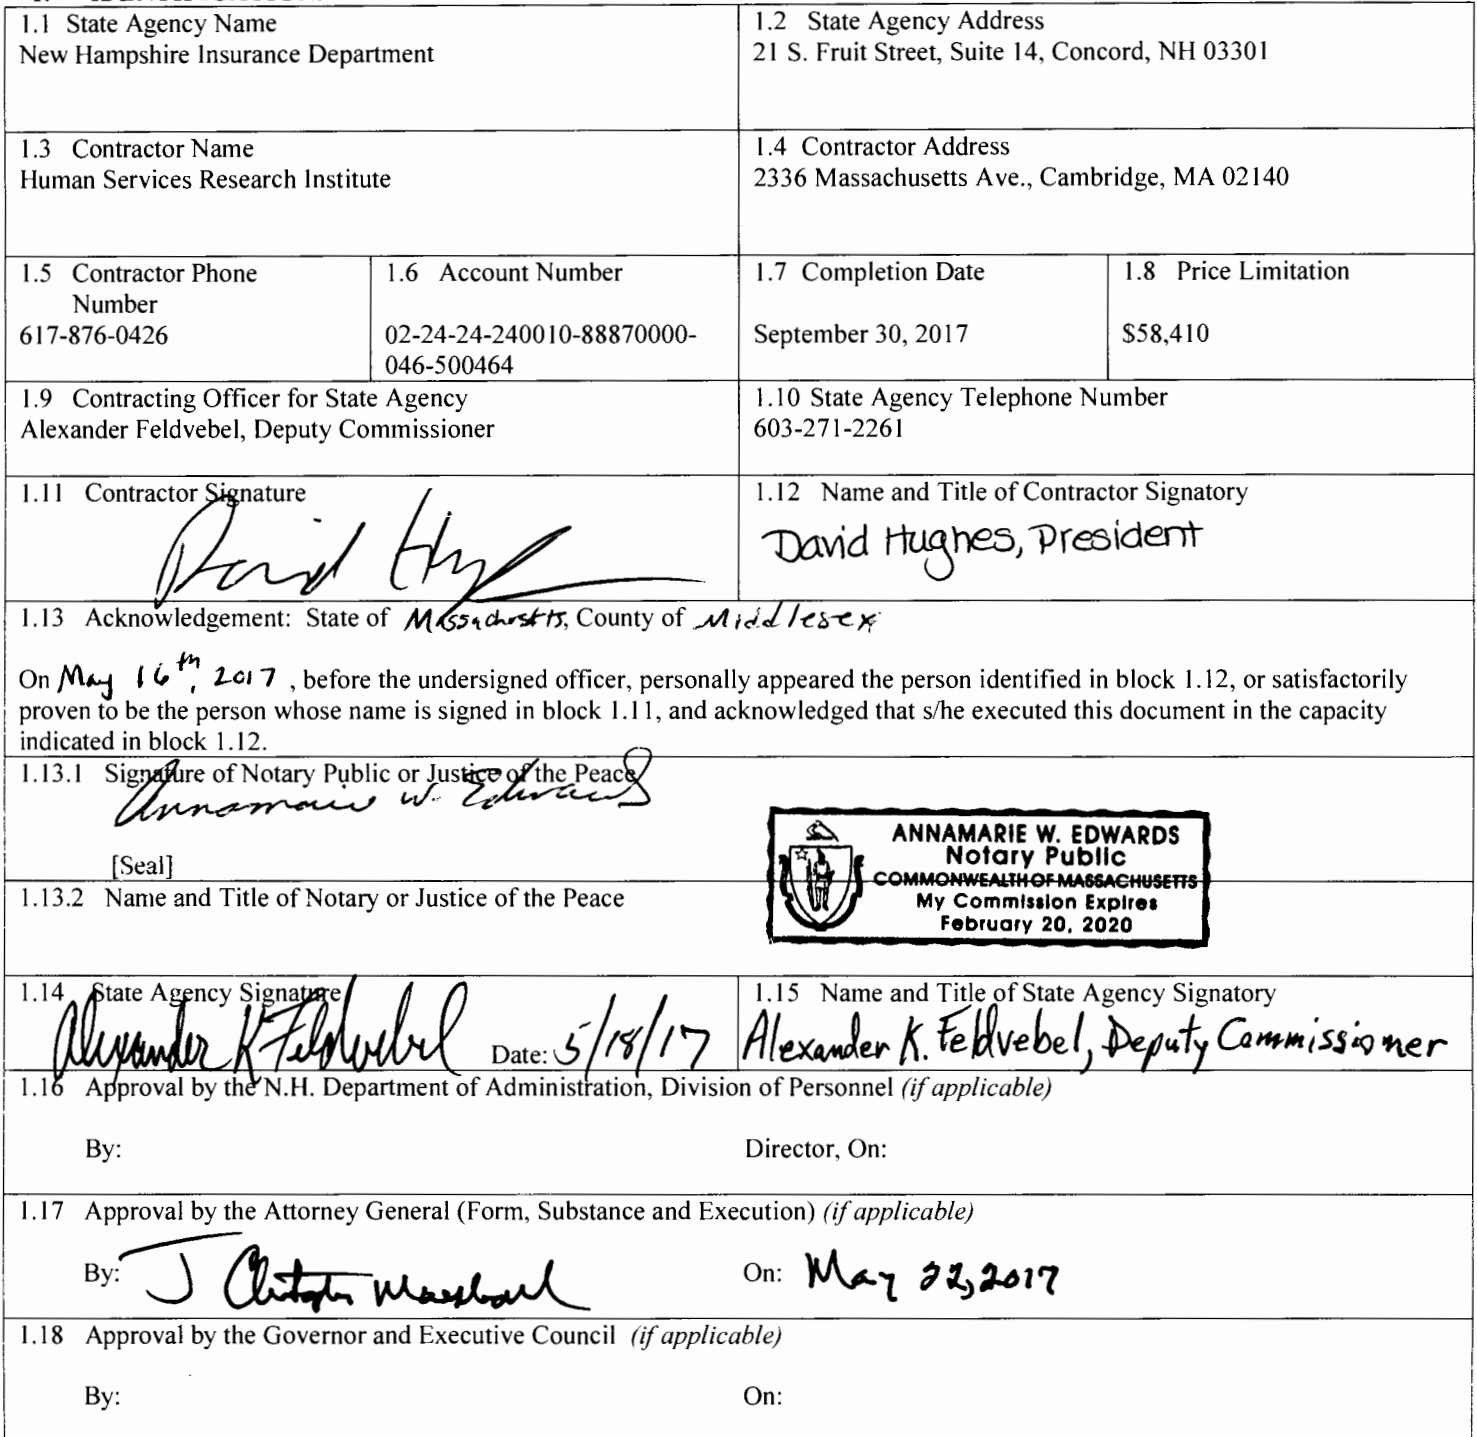 1.1 State Agency Name
New Hampshire Insurance Department
1.2 State Agency Address
21 S. Fruit Street, Suite 14, Concord, NH 03301
1.3 Contractor Name
Human Services Research Institute
1.4 Contractor Address
2336 Massachusetts Ave., Cambridge, MA 02140
1.5 Contractor Phone
Number
617-876-0426
1.6 Account Number
02-24-24-240010-88870000-
046-500464
1.7 Completion Date
September 30, 2017
1.8 Price Limitation
$58,410
1.9 Contracting Officer for State Agency
Alexander Feldvebel, Deputy Commissioner
1.10 State Agency Telephone Number
603-271-2261
1.11 Contractor Signature
David
1.12 Name and Title of Contractor Signatory
David Hughes, President
1.13 Acknowledgement: State of Massachusetts, County of Middlesex
On May 16th, 2017, before the undersigned officer, personally appeared the person identified in block 1.12, or satisfactorily
proven to be the person whose name is signed in block 1.11, and acknowledged that s/he executed this document in the capacity
indicated in block 1.12.
1.13.1 Signature of Notary Public or Justice of the Peace
Annamarie W. Edwards
[Seal]
ANNAMARIE W. EDWARDS
Notary Public
COMMONWEALTH OF MASSACHUSETTS
My Commission Expires
February 20, 2020
1.13.2 Name and Title of Notary or Justice of the Peace
1.14 State Agency Signature
Alexander K Feldvebel Date: 5/18/17
1.15 Name and Title of State Agency Signatory
Alexander K. Feldvebel, Deputy Commissioner
1.16 Approval by the N.H. Department of Administration, Division of Personnel (if applicable)
By: Director, On:
1.17 Approval by the Attorney General (Form, Substance and Execution) (if applicable)
By: J Christopher Marshall On: May 22, 2017
1.18 Approval by the Governor and Executive Council (if applicable)
By: On: